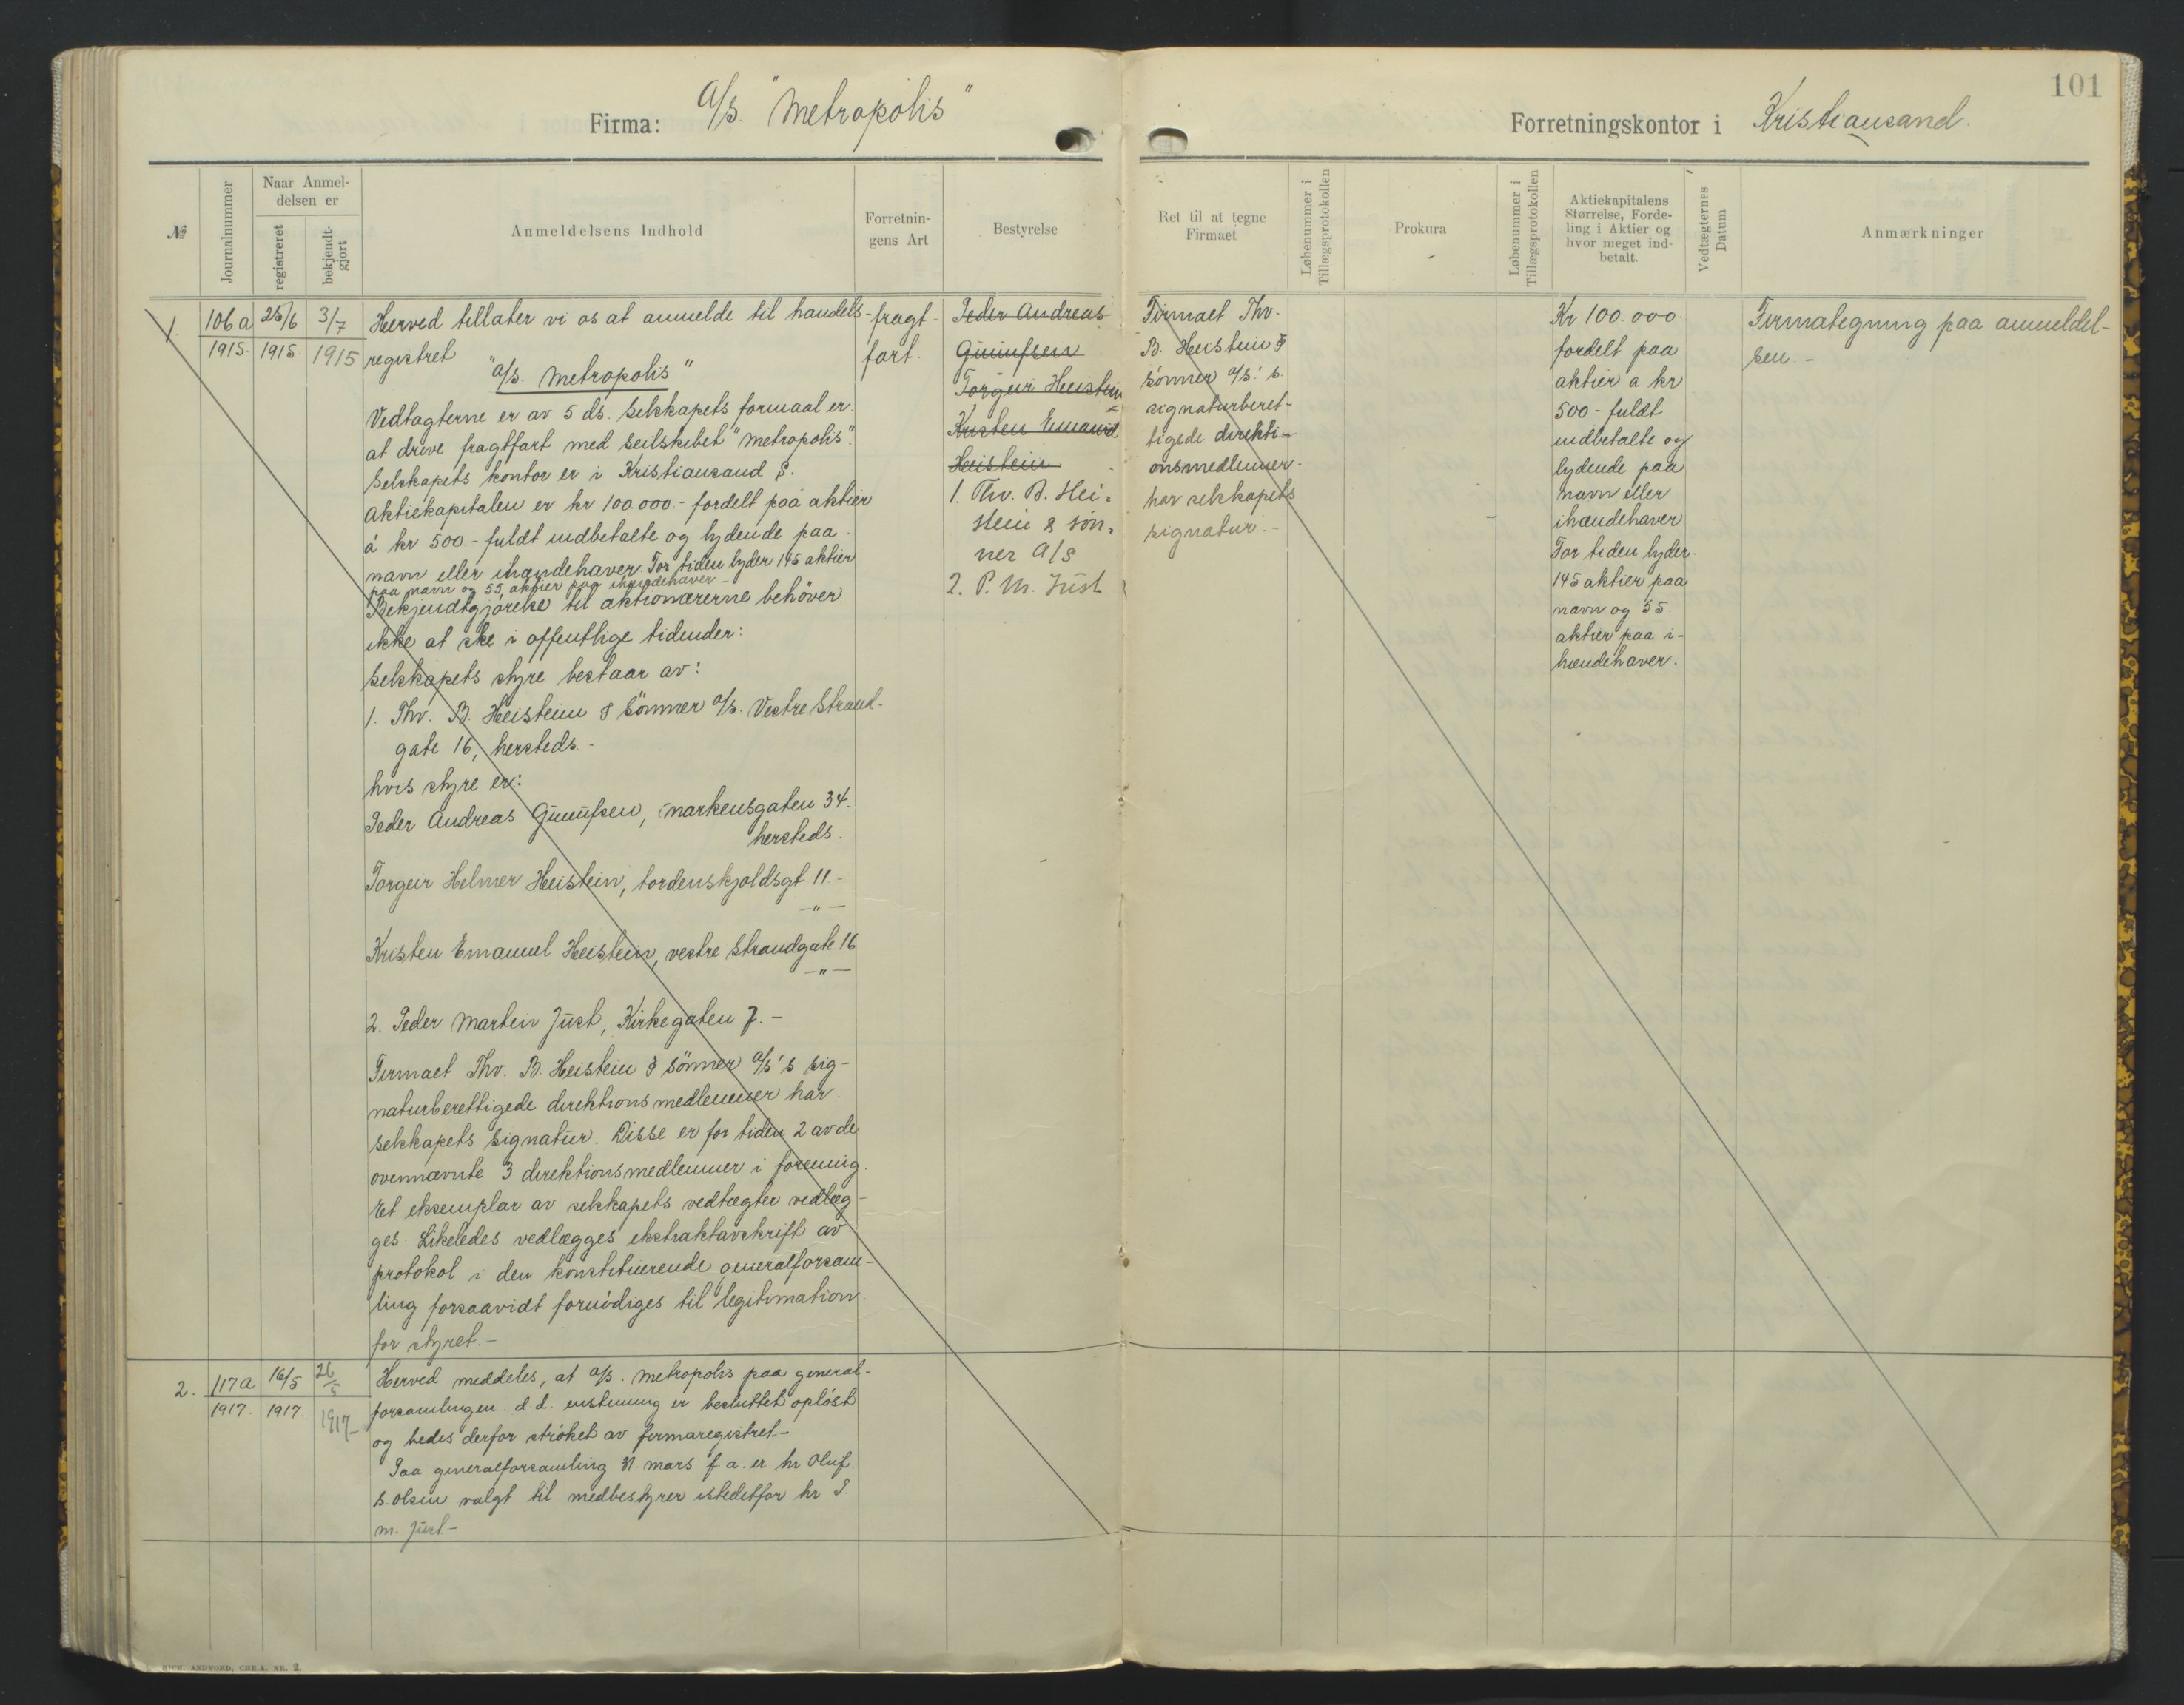 101
Firma: A/S. "Metropolis"
Forretningskontor i Kristiansand.
№
Journalnummer
Naar Anmel-
delsen er
registreret
bekjendt-
gjort
Anmeldelsens Indhold
Forretnin-
gens Art
Bestyrelse
Ret til at tegne
Firmaet
Løbenummer i
Tillægsprotokollen
Prokura
Løbenummer i
Tillægsprotokollen
Aktiekapitalens
Størrelse, Forde-
ling i Aktier og
hvor meget ind-
betalt.
Vedtægternes
Datum
Anmærkninger
1.
106a
1915.
25/6
1915.
3/7
1915
Herved tillater vi os at anmelde til handels-
registret
"A/S. Metropolis"
Vedtagterne er av 5 ds. Selskapets formaal er.
at drive fragtfart med seilskibet "Metropolis".
Selskapets kontor er i Kristiansand S.
Aktiekapitalen er kr 100.000.- fordelt paa aktier
á kr 500.- fuldt indbetalte og lydende paa
navn eller ihændehaver. For tiden lyder 145 aktier
paa navn og 55 aktier paa ihændehaver -
Bekjendtgjørelse til aktionærerne behöver
ikke at ske i offentlige tidender:
Selskapets styre bestaar av:
1. Thv. B. Heistein & Sönner A/S. Vestre Strand-
gate 16, hersteds. -
hvis styre er:
Peder Andreas Gunufsen, Markensgaten 34.
hersteds.
Torgeir Helmer Heistein, Tordenskjoldsgt 11.-
-"-
Kristen Emanuel Heistein, vestre Strandgate 16
-"-
2. Peder Martin Just, Kirkegaten 7.-
Firmaet Thv. B. Heistein & Sönner A/S's sig-
naturberettigede direktionsmedlemmer har.
selskapets signatur. Disse er for tiden 2 av de
ovennævnte 3 direktionsmedlemmer i forening.
Et eksemplar av selskapets vedtægter vedlæg-
ges. Likeledes vedlægges ekstraktavskrift av
protokol i den konstituerende generalforsam-
ling forsaavidt fornödiges til legitimation.
for styret.-
fragt-
fart.
Peder Andreas
Gunufsen
Torgeir Heistein
Kristen Emanuel
Heistein
1. Thv. B. Hei-
stein & søn-
ner A/S
2. P. M. Just
Firmaet Thv.
B. Heistein &
sönner A/S.' s.
signaturberet-
tigede direkti-
onsmedlemmer.
har selskapets
signatur.-
Kr 100.000.
fordelt paa
aktier a kr
500 - fuldt
indbetalte og
lydende paa
navn eller
ihændehaver
For tiden lyder.
145 aktier paa
navn og 55.
aktier paa i-
hændehaver.
Firmategning paa anmeldel-
sen.-
2.
117a
1917.
16/5
1917.
26/5
1917-
Herved meddeles, at A/S. Metropolis paa general-
forsamlingen d. d. enstemmig er besluttet opløst
og bedes derfor strøket av firmaregistret.-
Paa generalforsamling 31 mars f. a. er hr Oluf.
S. Olsen valgt til medbestyrer istedetfor hr P.
M. Just.-
RICH. ANDVORD, CHR.A. NR. 2.